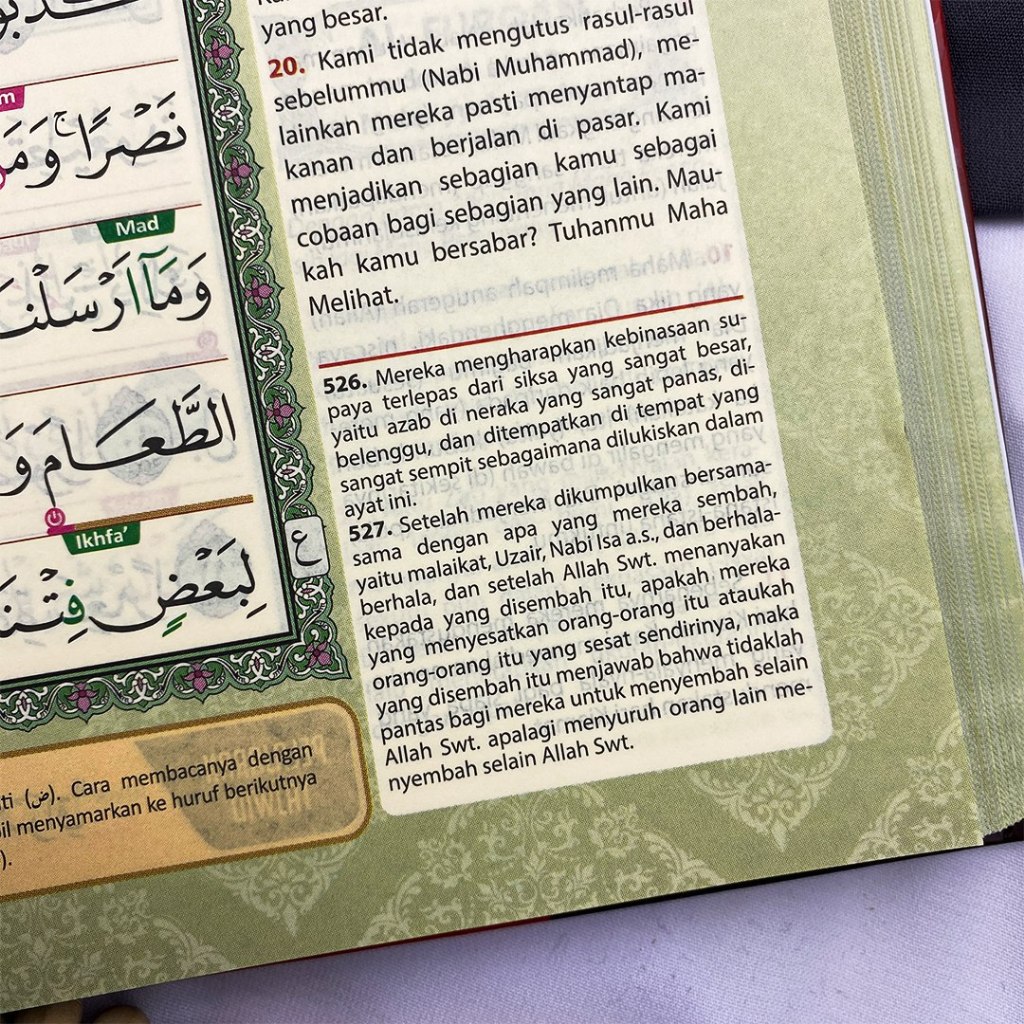 نَصْرًا ۚ وَمَنْ
Mad
وَمَآ اَرْسَلْنَا
الطَّعَامَ وَ
Ikhfa'
لِبَعْضٍ فِتْنَ
ع
yang besar.
20. Kami tidak mengutus rasul-rasul
sebelummu (Nabi Muhammad), me-
lainkan mereka pasti menyantap ma-
kanan dan berjalan di pasar. Kami
menjadikan sebagian kamu sebagai
cobaan bagi sebagian yang lain. Mau-
kah kamu bersabar? Tuhanmu Maha
Melihat.
526. Mereka mengharapkan kebinasaan su-
paya terlepas dari siksa yang sangat besar,
yaitu azab di neraka yang sangat panas, di-
belenggu, dan ditempatkan di tempat yang
sangat sempit sebagaimana dilukiskan dalam
ayat ini.
527. Setelah mereka dikumpulkan bersama-
sama dengan apa yang mereka sembah,
yaitu malaikat, Uzair, Nabi Isa a.s., dan berhala-
berhala, dan setelah Allah Swt. menanyakan
kepada yang disembah itu, apakah mereka
yang menyesatkan orang-orang itu ataukah
orang-orang itu yang sesat sendirinya, maka
yang disembah itu menjawab bahwa tidaklah
pantas bagi mereka untuk menyembah selain
Allah Swt. apalagi menyuruh orang lain me-
nyembah selain Allah Swt.
ti (ض). Cara membacanya dengan
il menyamarkan ke huruf berikutnya
).